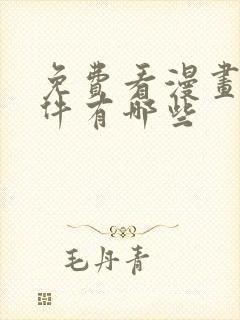 免費看漫畫
件有哪些
毛丹青